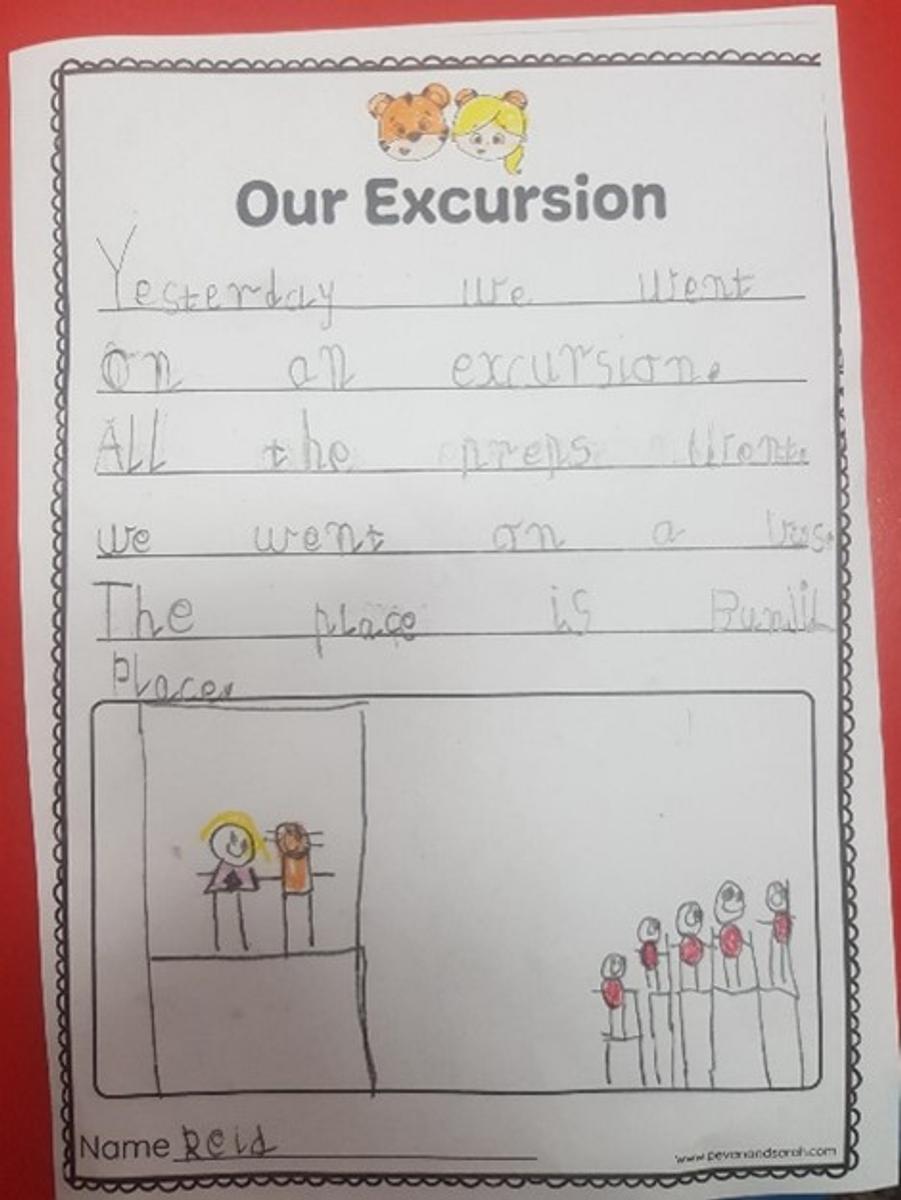 Our Excursion
Yesterday we went
on an excursion.
All the preps went.
we went on a bus.
The place is Bunjil
Place.
Name Reid
www.pevanandsarah.com